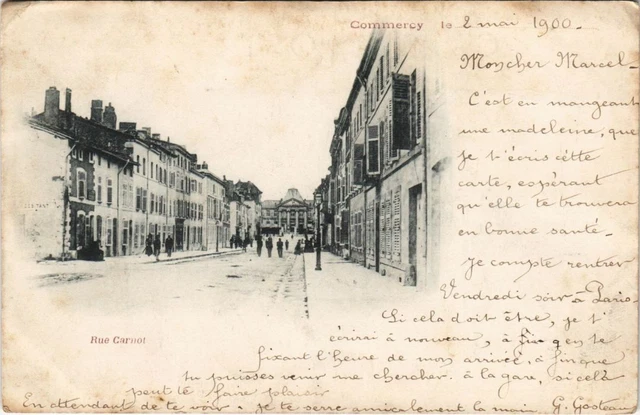 Commercy le 2 mai 1900.
Mon cher Marcel -
C'est en mangeant
une madeleine, que
je t'écris cette
carte, espérant
qu'elle te trouvera
en bonne santé.
Je compte rentrer
Vendredi soir à Paris
Si cela doit être, je t'
écrirai à nouveau, à fin qu'en te
fixant l'heure de mon arrivée, à fin que
tu puisses venir me chercher à la gare, si cela
peut te faire plaisir
En attendant de te voir. Je te serre amicalement la main G.
Rue Carnot